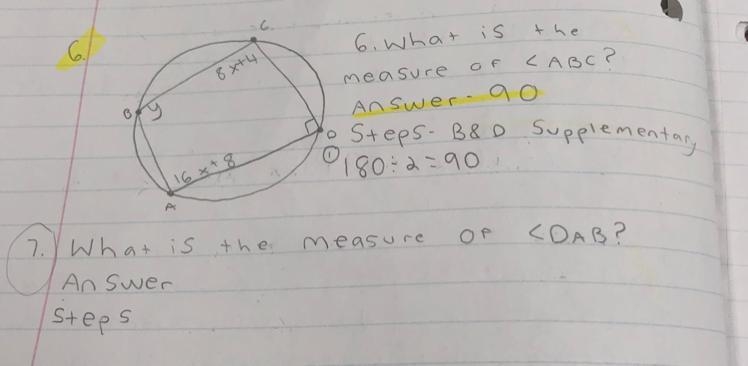 6.
C
8x+4
B
y
D
16x+8
A
6. What is the
measure of <ABC?
Answer - 90
Steps- B&D Supplementary
① 180÷2=90
7. What is the measure of <DAB?
Answer
Steps